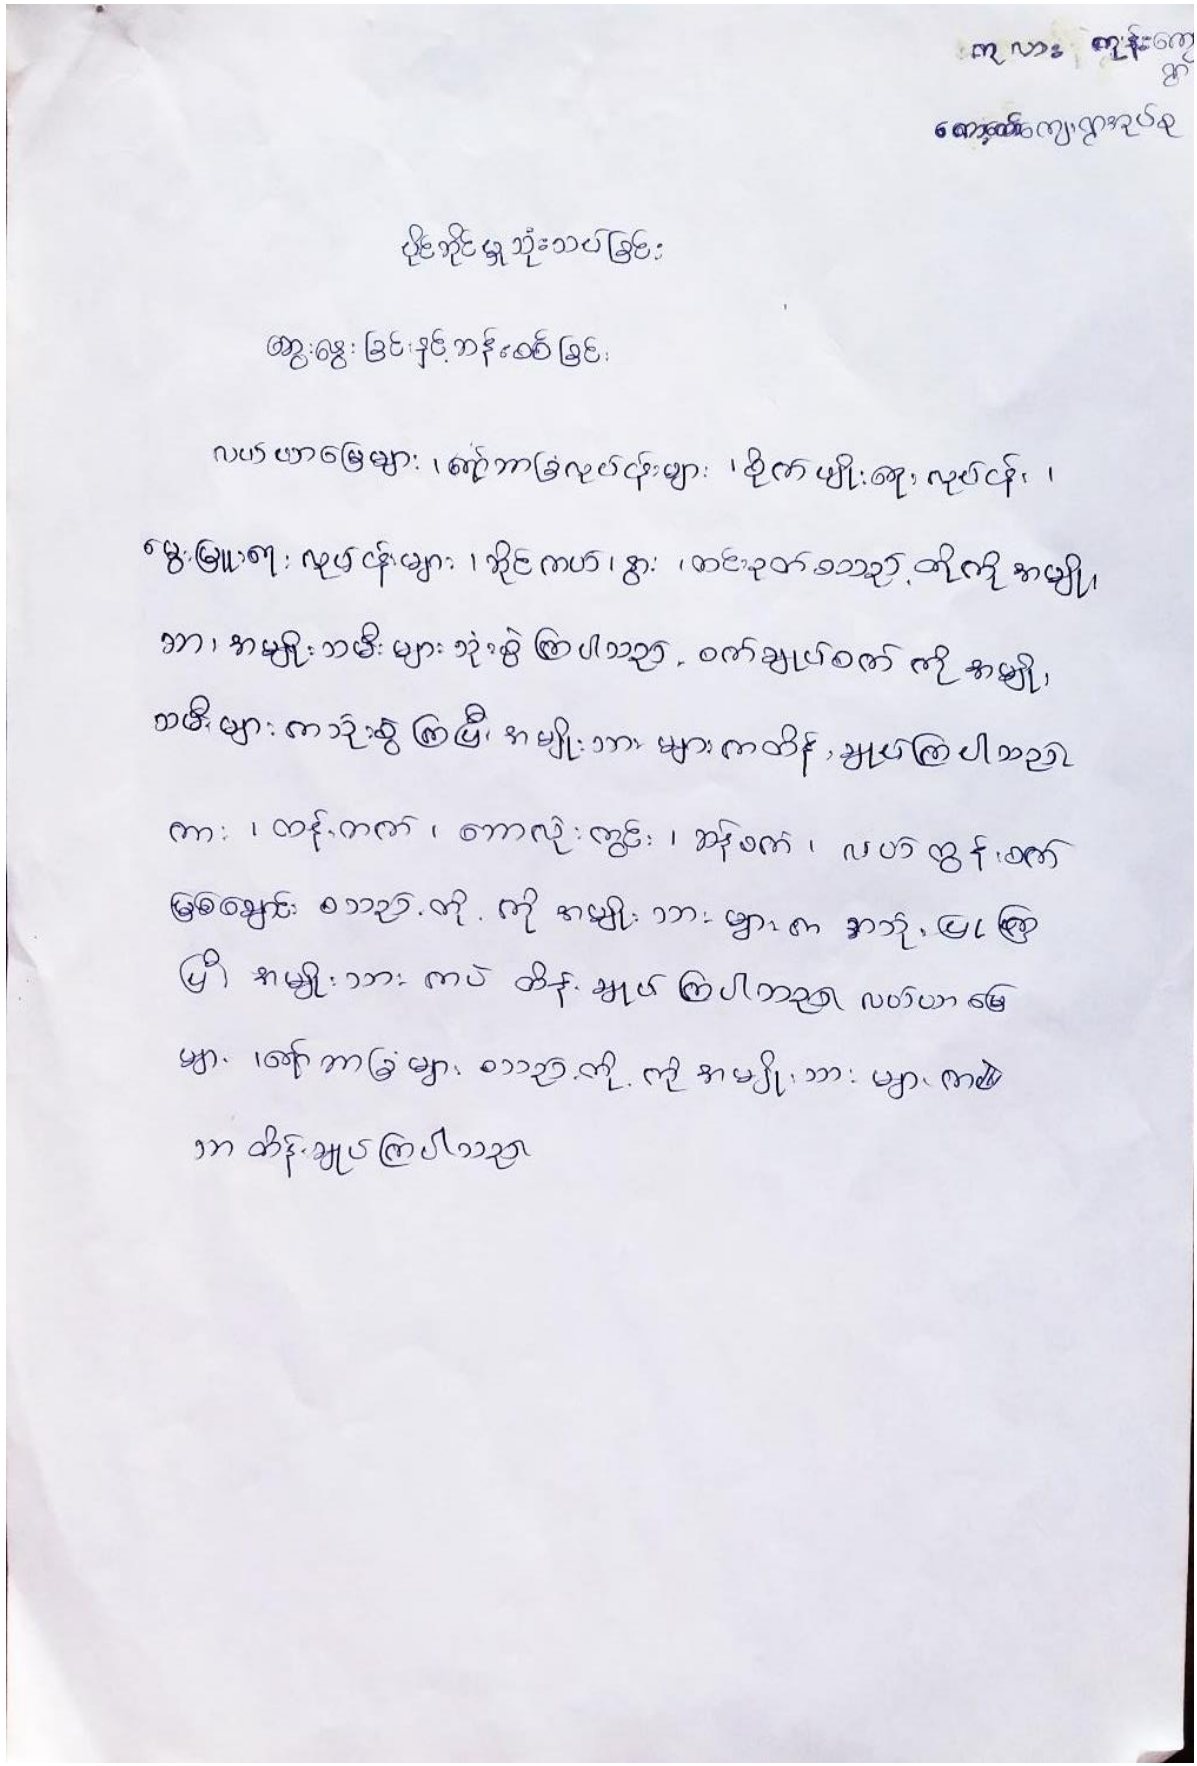 ကုလားကုန်းကျေး
ရွာ
ကျေးရွာအုပ်စု
ပိုင်ဆိုင်မှုသုံးသပ်ခြင်း
ဆွေးနွေးခြင်းနှင့်ဆန်းစစ်ခြင်း
လယ်ယာမြေများ ၊ ဆော်ဘာခြံလုပ်ငန်းများ ၊ စိုက်ပျိုးရေးလုပ်ငန်း ၊
မွေးမြူရေး လုပ်ငန်းများ ၊ ဆိုင်ကယ် ၊ နွား ၊ ဟင်းရွက် စသည်တို့ကို အမျိုး
သား ၊ အမျိုးသမီးများ သုံးစွဲကြပါသည်။ စက်ချုပ်စက် ကို အမျိုး
သမီးများက သုံးစွဲကြပြီး အမျိုးသားများက ထိန်းချုပ်ကြပါသည်။
ကား ၊ ၊ ဘောလုံးကွင်း ၊ ဆန်စက် ၊ လယ်ထွန်စက်
မြစ်ချောင်း စသည်တို့ကို အမျိုးသားများက အသုံးပြုကြ
ပြီး အမျိုးသားကပဲ ထိန်းချုပ်ကြပါသည်။ လယ်ယာမြေ
များ ၊ ဆော်ဘာခြံများ စသည်တို့ကို အမျိုးသားများက
သာ ထိန်းချုပ်ကြပါသည်။